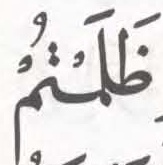 ظَلَمْتُمْ